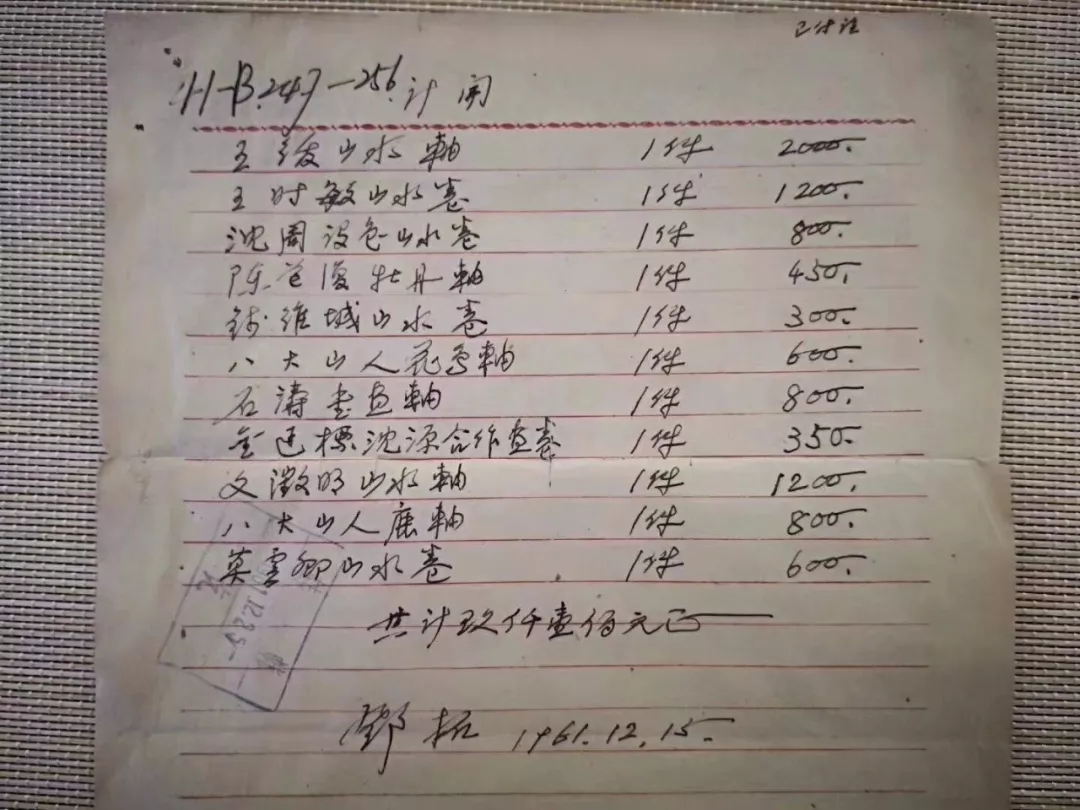 已付注
H-B.247—256. 计开
王绂山水軸 1件 2000.
王时敏山水卷 1件 1200.
沈周设色山水卷 1件 800.
陈道復牡丹軸 1件 450.
钱维城山水卷 1件 300.
八大山人花鸟軸 1件 600.
石濤書画軸 1件 800.
金廷標沈源合作画卷 1件 350.
文徵明山水軸 1件 1200.
八大山人鹿軸 1件 800.
莫雲卿山水卷 1件 600.
共计玖仟壹佰元正
鄧拓 1961.12.15.